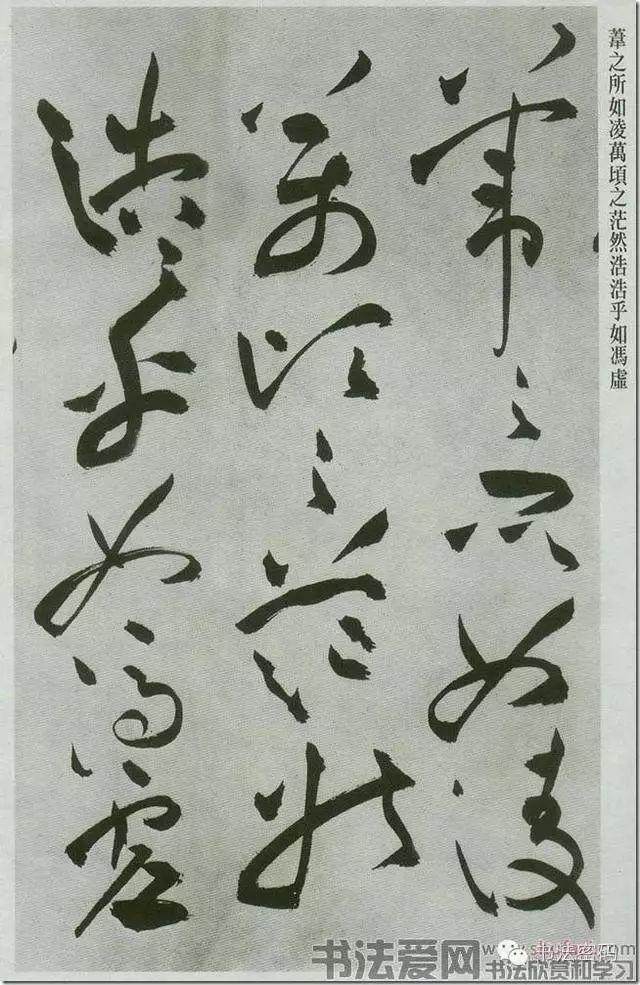 葦之所如凌萬頃之茫然浩浩乎如馮虛
葦之所如凌
萬頃之茫然
浩〻乎如馮虛
书法爱网
www.
书法密码
书法欣赏和学习